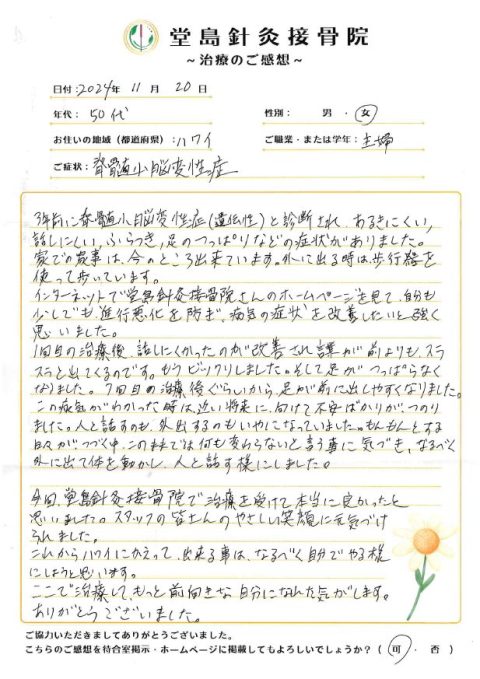 堂島針灸接骨院
～治療のご感想～
日付：2024年 11月 20日
年代：50代 性別： 男 ・ 女
お住いの地域（都道府県）：ハワイ ご職業・または学年：主婦
ご症状：脊髄小脳変性症
3年前に脊髄小脳変性症(遺伝性)と診断され、あるきにくい,
話しにくい,ふらつき,足のつっぱりなどの症状がありました。
家での家事は、今のところ出来ています。外に出る時は、歩行器を
使って歩いています。
インターネットで堂島針灸接骨院さんのホームページを見て、自分も
少しでも、進行悪化を防ぎ、病気の症状を改善したいと強く
思いました。
1回目の治療後、話しにくかったのが改善され言葉が前よりも、スラ
スラと出てくるのです。もうビックリしました。そして足がつっぱらなく
なりました。7回目の治療後ぐらいから、足が前に出しやすくなりました。
この病気がわかった時は、近い将来に、向けて不安ばかりがつのり
ました。人と話すのも、外出するのもいやになっていました。もんもんとする
日々がつづく中、このままでは何も変わらないと言う事に気づき、なるべく
外に出て体を動かし、人と話す様にしました。
今回、堂島針灸接骨院で治療を受けて本当に良かったと
思いました。スタッフの皆さんのやさしい笑顔に元気づけ
られました。
これからハワイにかえって、出来る事は、なるべく自分でやる様
にしようと思います。
ここで治療して、もっと前向きな自分になれた気がします。
ありがとうございました。
ご協力いただきましてありがとうございました。
こちらのご感想を待合室掲示・ホームページに掲載してもよろしいでしょうか？（ 可 ・ 否 ）